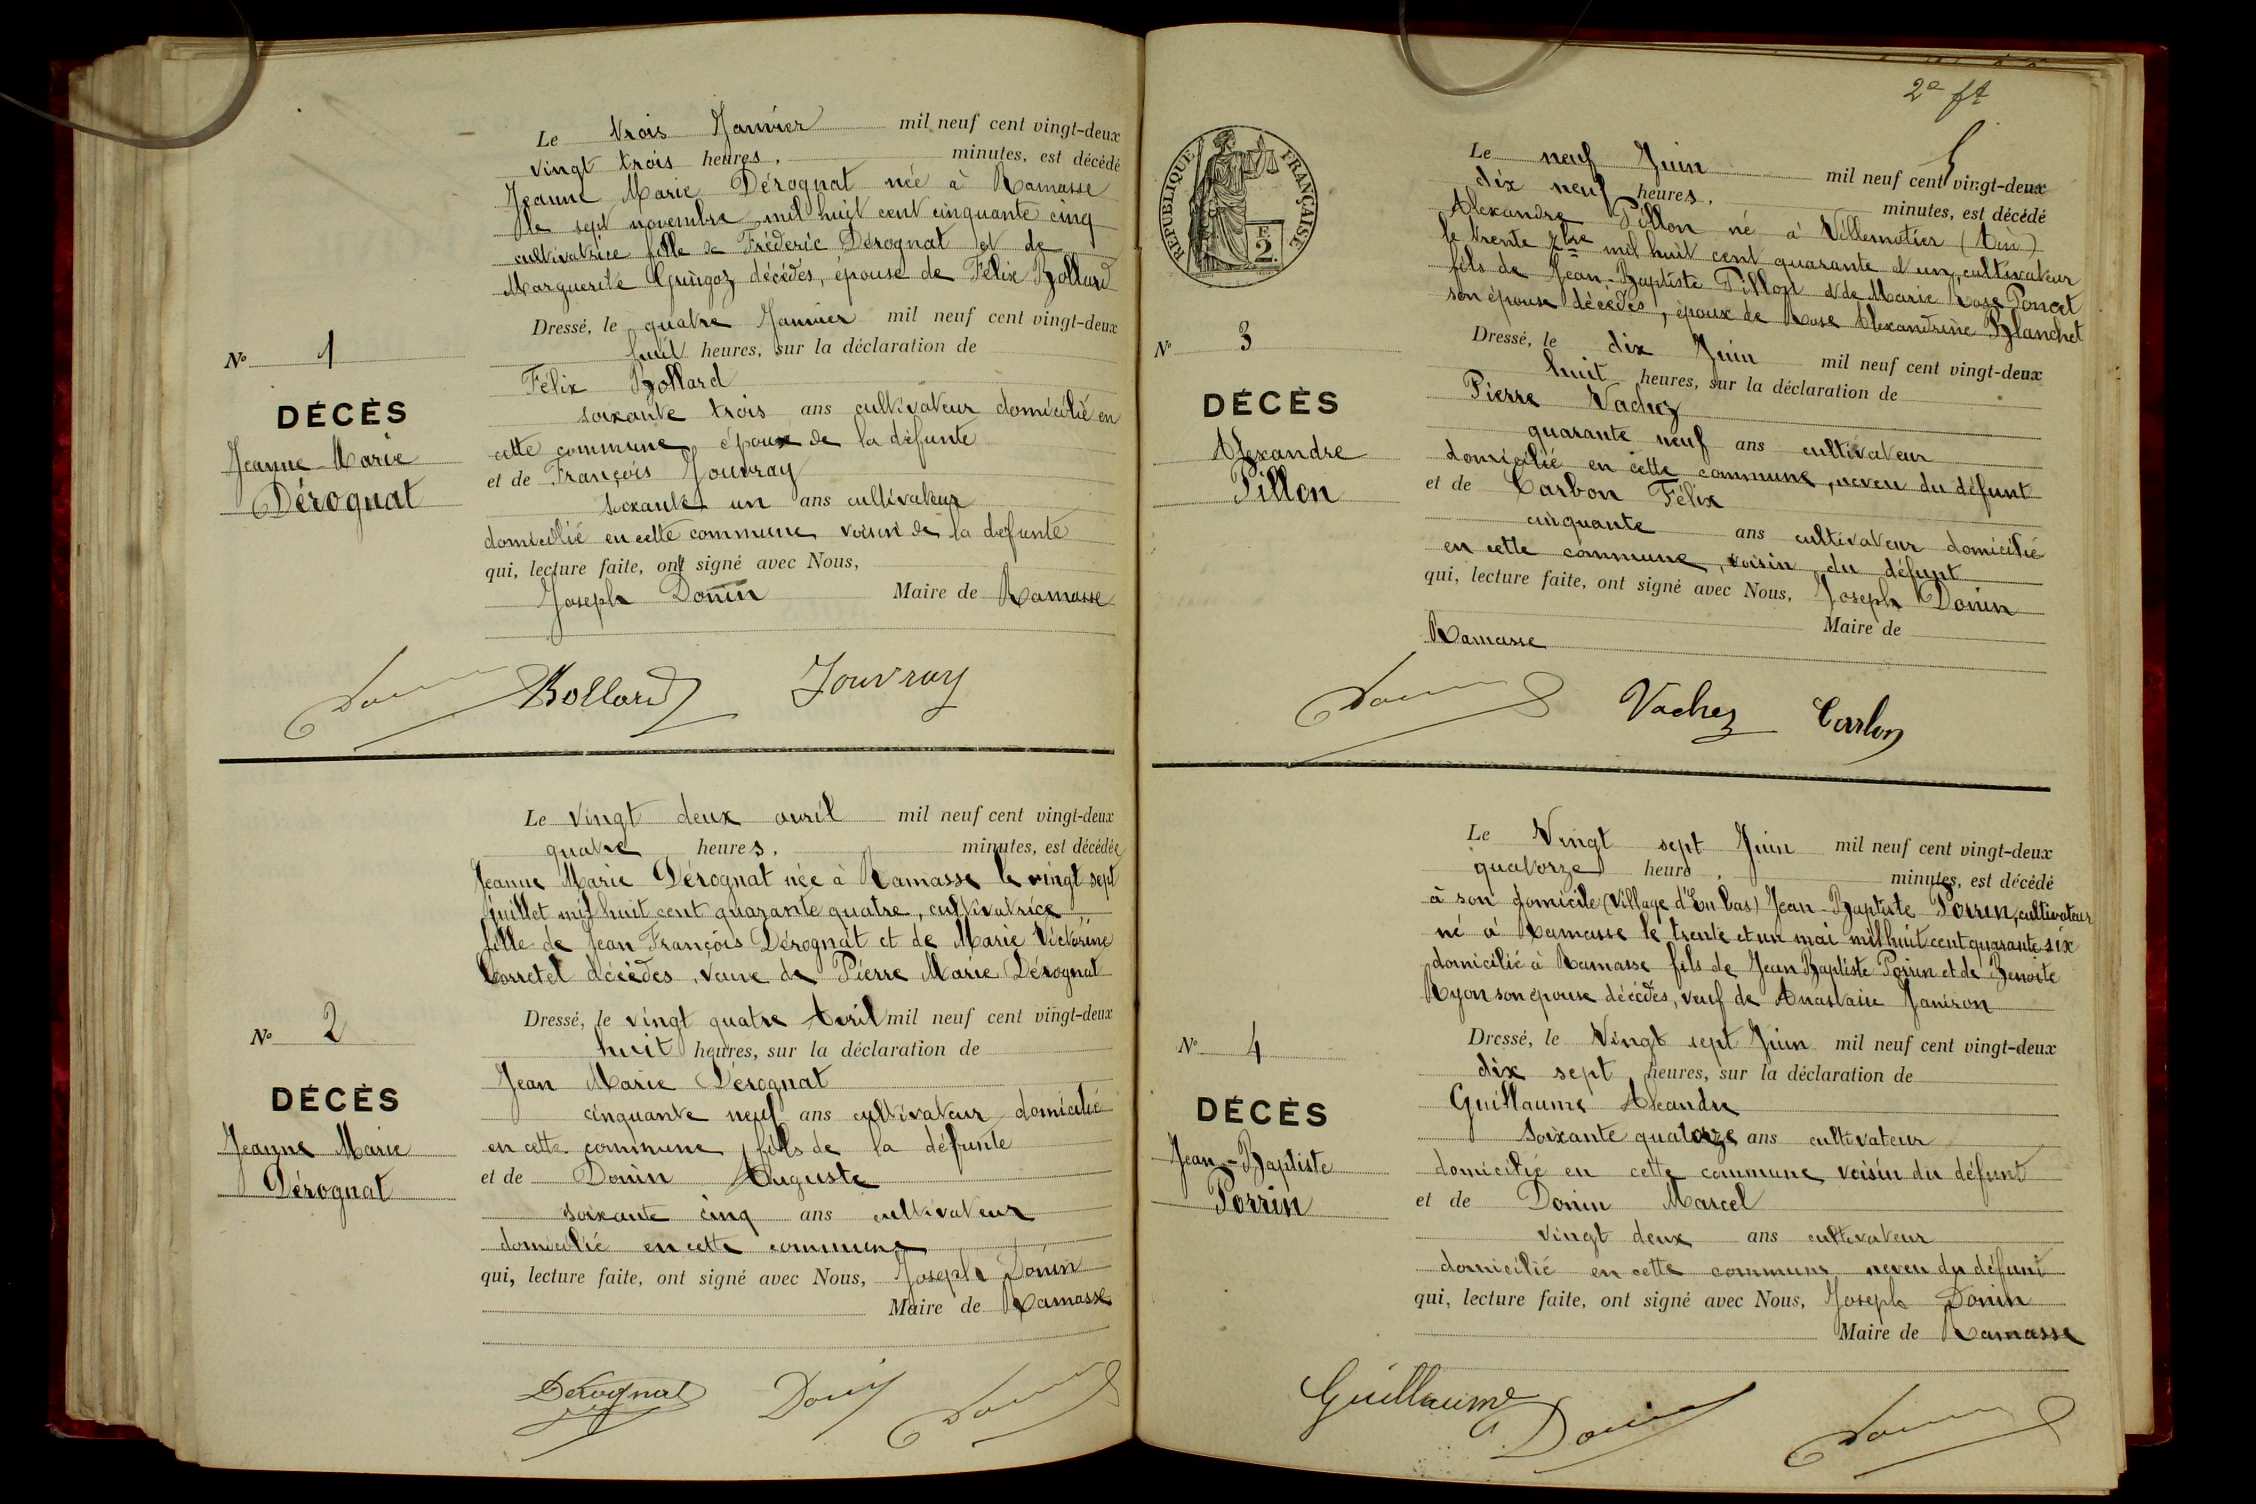 Le trois Janvier mil neuf cent vingt-deux
vingt trois heures, minutes, est décédé
Jeanne Marie Dérognat née à Ramasse
le sept novembre mil huit cent cinquante cinq
cultivatrice fille de Fréderic Dérognat et de
Marguerite Gringoz décédés, épouse de Félix Bollard
Dressé, le quatre Janvier mil neuf cent vingt-deux
huit heures, sur la déclaration de
Félix Bollard
soixante trois ans cultivateur domicilié en
cette commune époux de la défunte
et de François Jouvray
soixante un ans cultivateur
domicilié en cette commune voisin de la defunte
qui, lecture faite, ont signé avec Nous,
Joseph Donin Maire de Ramasse
Bollard Jouvray
No 1
DÉCÈS
Jeanne Marie
Dérognat
Le vingt deux avril mil neuf cent vingt-deux
quatre heures, minutes, est décédée
Jeanne Marie Dérognat née à Ramasse le vingt sept
juillet mil huit cent quarante quatre, cultivatrice
fille de Jean François Dérognat et de Marie Victorine
Corretel décédés, veuve de Pierre Marie Dérognat
Dressé, le vingt quatre Avril mil neuf cent vingt-deux
huit heures, sur la déclaration de
Jean Marie Dérognat
cinquante neuf ans cultivateur domicilié
en cette commune, fils de la défunte
et de Donin Auguste
soixante cinq ans cultivateur
domicilié en cette commune
qui, lecture faite, ont signé avec Nous, Joseph Donin
Maire de Ramasse
Dérognat Donin
No 2
DÉCÈS
Jeanne Marie
Dérognat
2e ft
RÉPUBLIQUE FRANÇAISE
2.
Le neuf Juin mil neuf cent vingt-deux
dix neuf heures, minutes, est décédé
Alexandre Pillon né à Villemotier (Ain)
le trente 7bre mil huit cent quarante et un, cultivateur
fils de Jean-Baptiste Pillon et de Marie Rose Poncet
son épouse décédés, époux de Rose Alexandrine Blanchet
Dressé, le dix Juin mil neuf cent vingt-deux
huit heures, sur la déclaration de
Pierre Vachez
quarante neuf ans cultivateur
domicilié en cette commune, neveu du défunt
et de Carbon Félix
cinquante ans cultivateur domicilié
en cette commune, voisin du défunt
qui, lecture faite, ont signé avec Nous, Joseph Donin
Maire de
Ramasse
Vachez Carbon
No 3
DÉCÈS
Alexandre
Pillon
Le Vingt sept Juin mil neuf cent vingt-deux
quatorze heure, minutes, est décédé
à son domicile (Village d'En bas) Jean-Baptiste Porrin, cultivateur
né à Ramasse le trente et un mai mil huit cent quarante six
domicilié à Ramasse fils de Jean Baptiste Porrin et de Benoite
Ryon son épouse décédés, veuf de Anastaise Janiron
Dressé, le Vingt sept Juin mil neuf cent vingt-deux
dix sept heures, sur la déclaration de
Guillaume Alexandre
soixante quatorze ans cultivateur
domicilié en cette commune voisin du défunt
et de Donin Marcel
vingt deux ans cultivateur
domicilié en cette commune neveu du défunt
qui, lecture faite, ont signé avec Nous, Joseph Donin
Maire de Ramasse
Guillaume Donin
No 4
DÉCÈS
Jean-Baptiste
Porrin